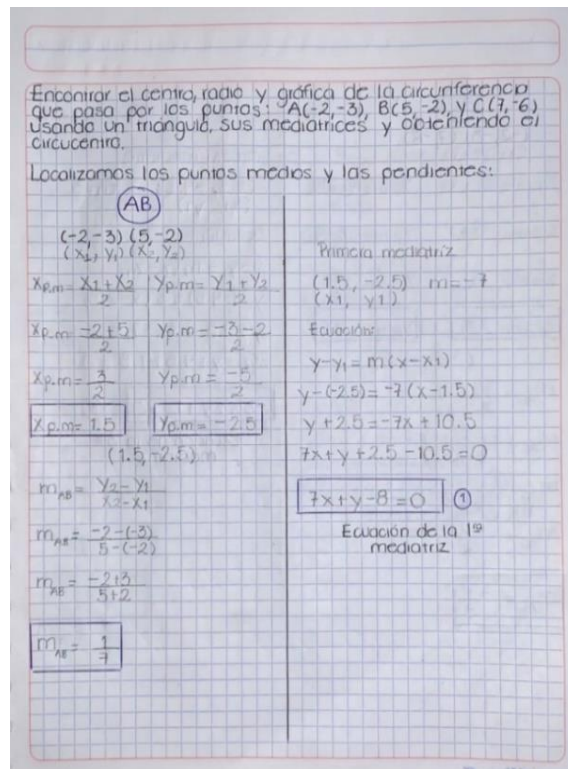 Encontrar el centro, radio y gráfica de la circunferencia
que pasa por los puntos: A(-2,-3), B(5,-2) y C(7,-6)
usando un triángulo, sus mediatrices y obteniendo el
circucentro.
Localizamos los puntos medios y las pendientes:
AB
(-2,-3) (5,-2)
(X1, Y1) (X2, Y2)
Xp.m = X1+X2/2 Yp.m = Y1+Y2/2
Xp.m = -2+5/2 Yp.m = -3-2/2
Xp.m = 3/2 Yp.m = -5/2
Xp.m = 1.5 Yp.m = -2.5
(1.5, -2.5)
mAB = Y2-Y1/X2-X1
mAB = -2-(-3)/5-(-2)
mAB = -2+3/5+2
mAB = 1/7
Primera mediatriz
(1.5, -2.5) m=-7
(x1, y1)
Ecuación:
y-y1 = m(x-x1)
y-(-2.5) = -7(x-1.5)
y+2.5 = -7x+10.5
7x+y+2.5-10.5=0
7x+y-8=0 ①
Ecuación de la 1ª
mediatriz